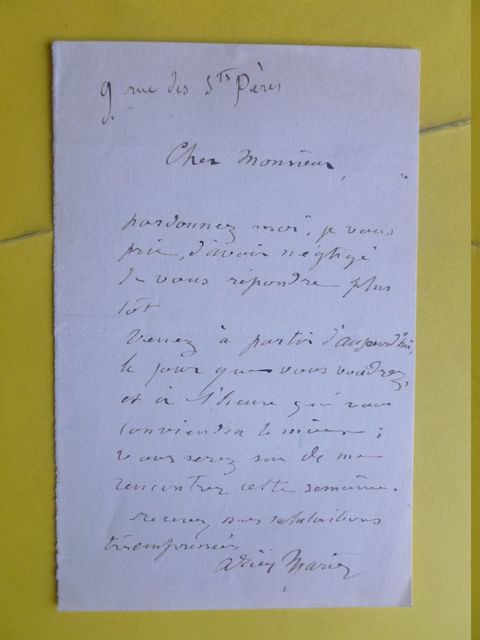 9 rue des Sts Pères
Cher Monsieur,
pardonnez moi, je vous
prie, d'avoir négligé
de vous répondre plus
tôt
Venez à partir d'aujourd'hui,
le jour que vous voudrez,
et à l'heure qui vous
conviendra le mieux ;
vous serez sûr de me
rencontrer cette semaine.
recevez mes salutations
très empressées